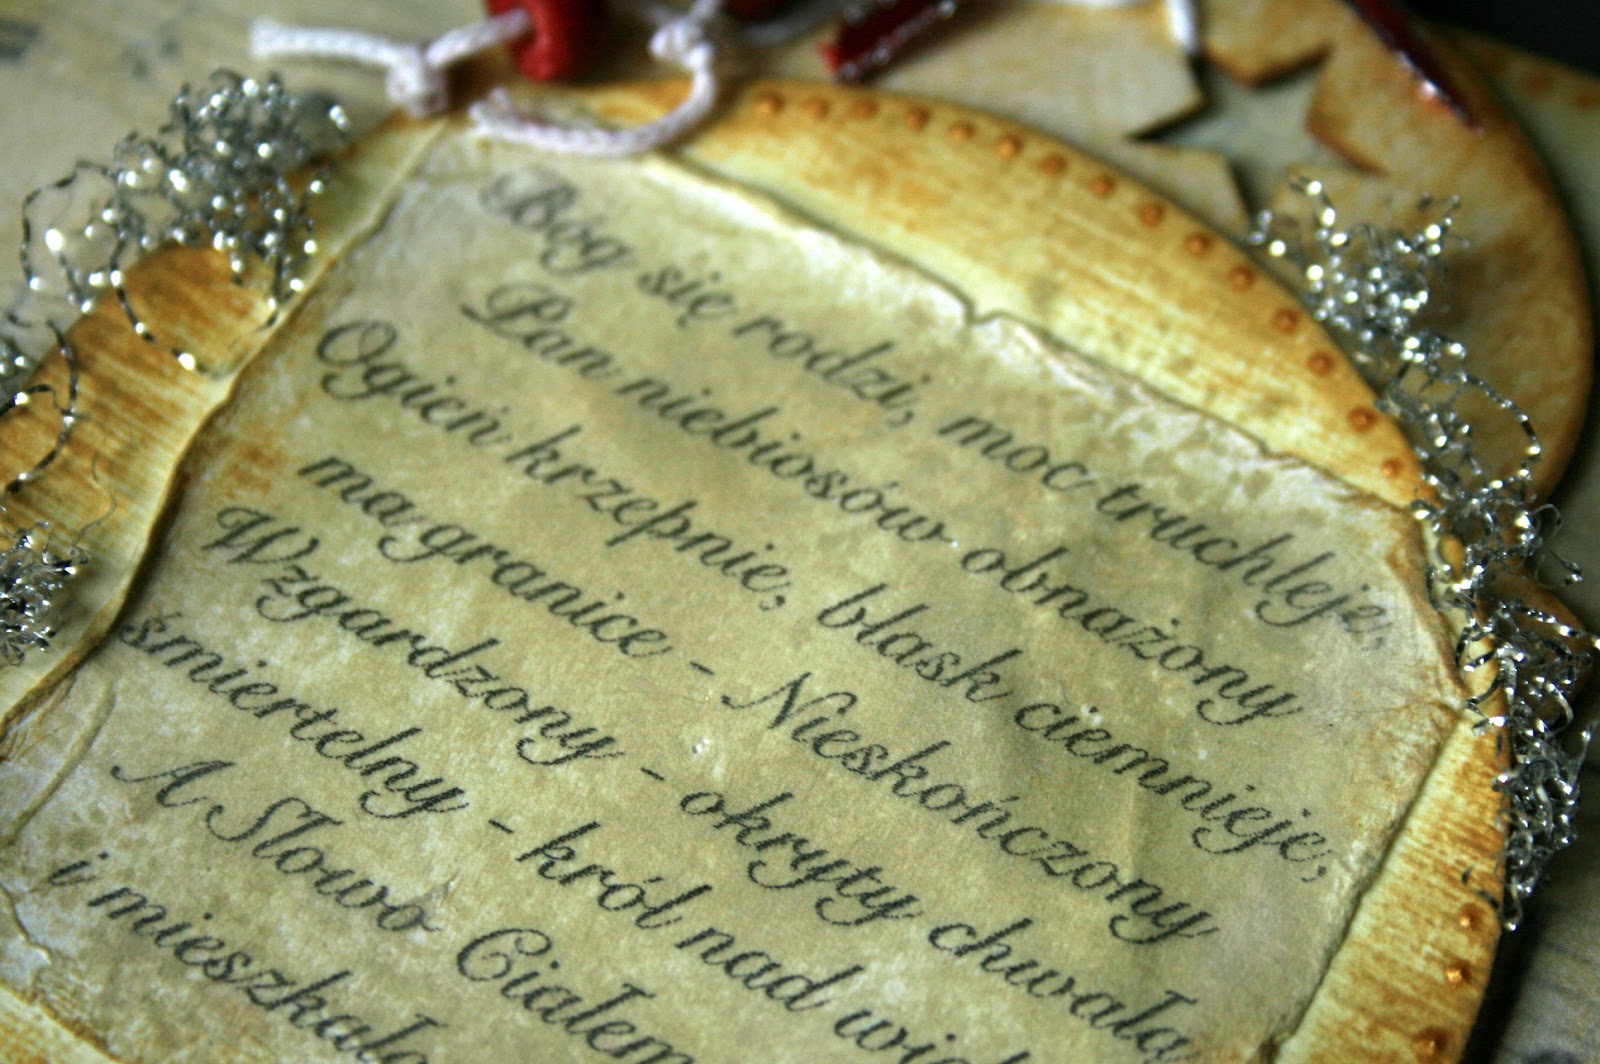 Bóg się rodzi, moc truchleje,
Pan niebiosów obnażony
Ogień krzepnie, blask ciemnieje,
ma granice - Nieskończony
Wzgardzony - okryty chwałą
śmiertelny - król nad
A Słowo Ciałem
i mieszkało